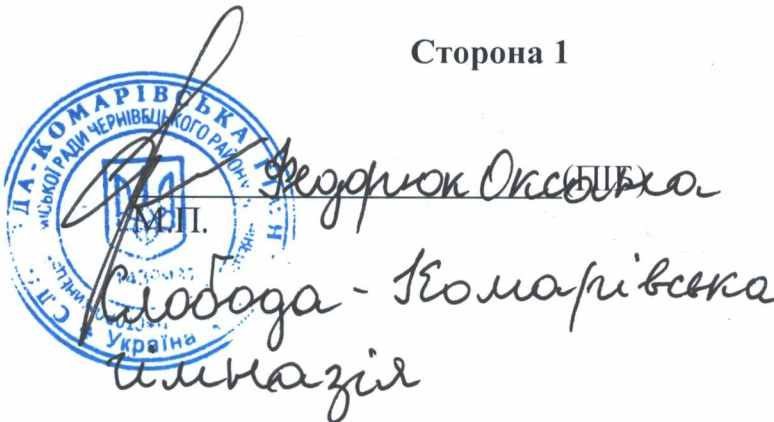 Сторона 1
Федорюк Оксана
(ПІБ)
М.П.
Слобода - Комарівська
гімназія
ДА-КОМАРІВСЬКА
РАДИ ЧЕРНІВЕЦЬКОГО РАЙОНУ
Україна